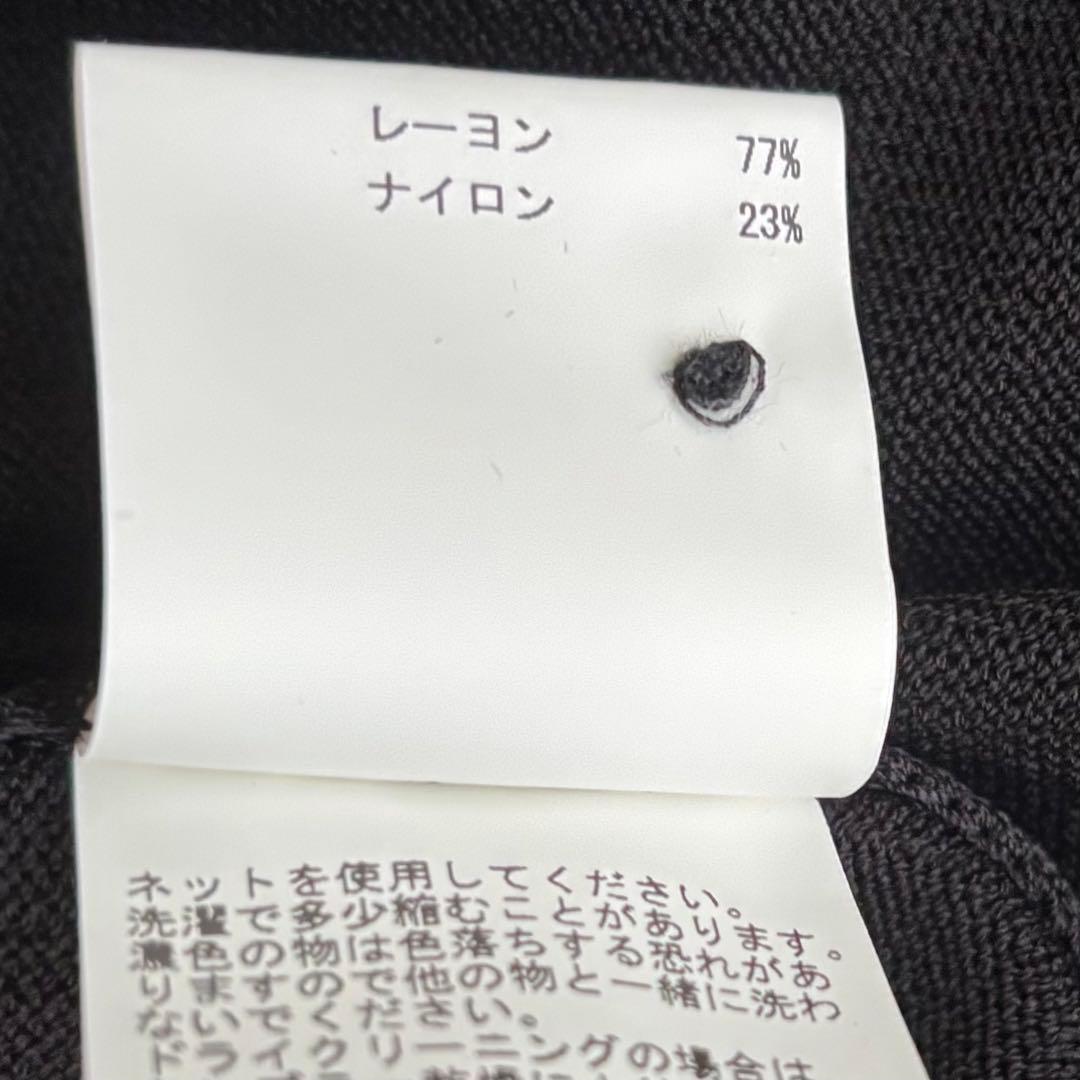 レーヨン 77%
ナイロン 23%
ネットを使用してください。
洗濯で多少縮むことがあります。
濃色の物は色落ちする恐れがあ
りますので他の物と一緒に洗わ
ないでください。
ドライクリーニングの場合は